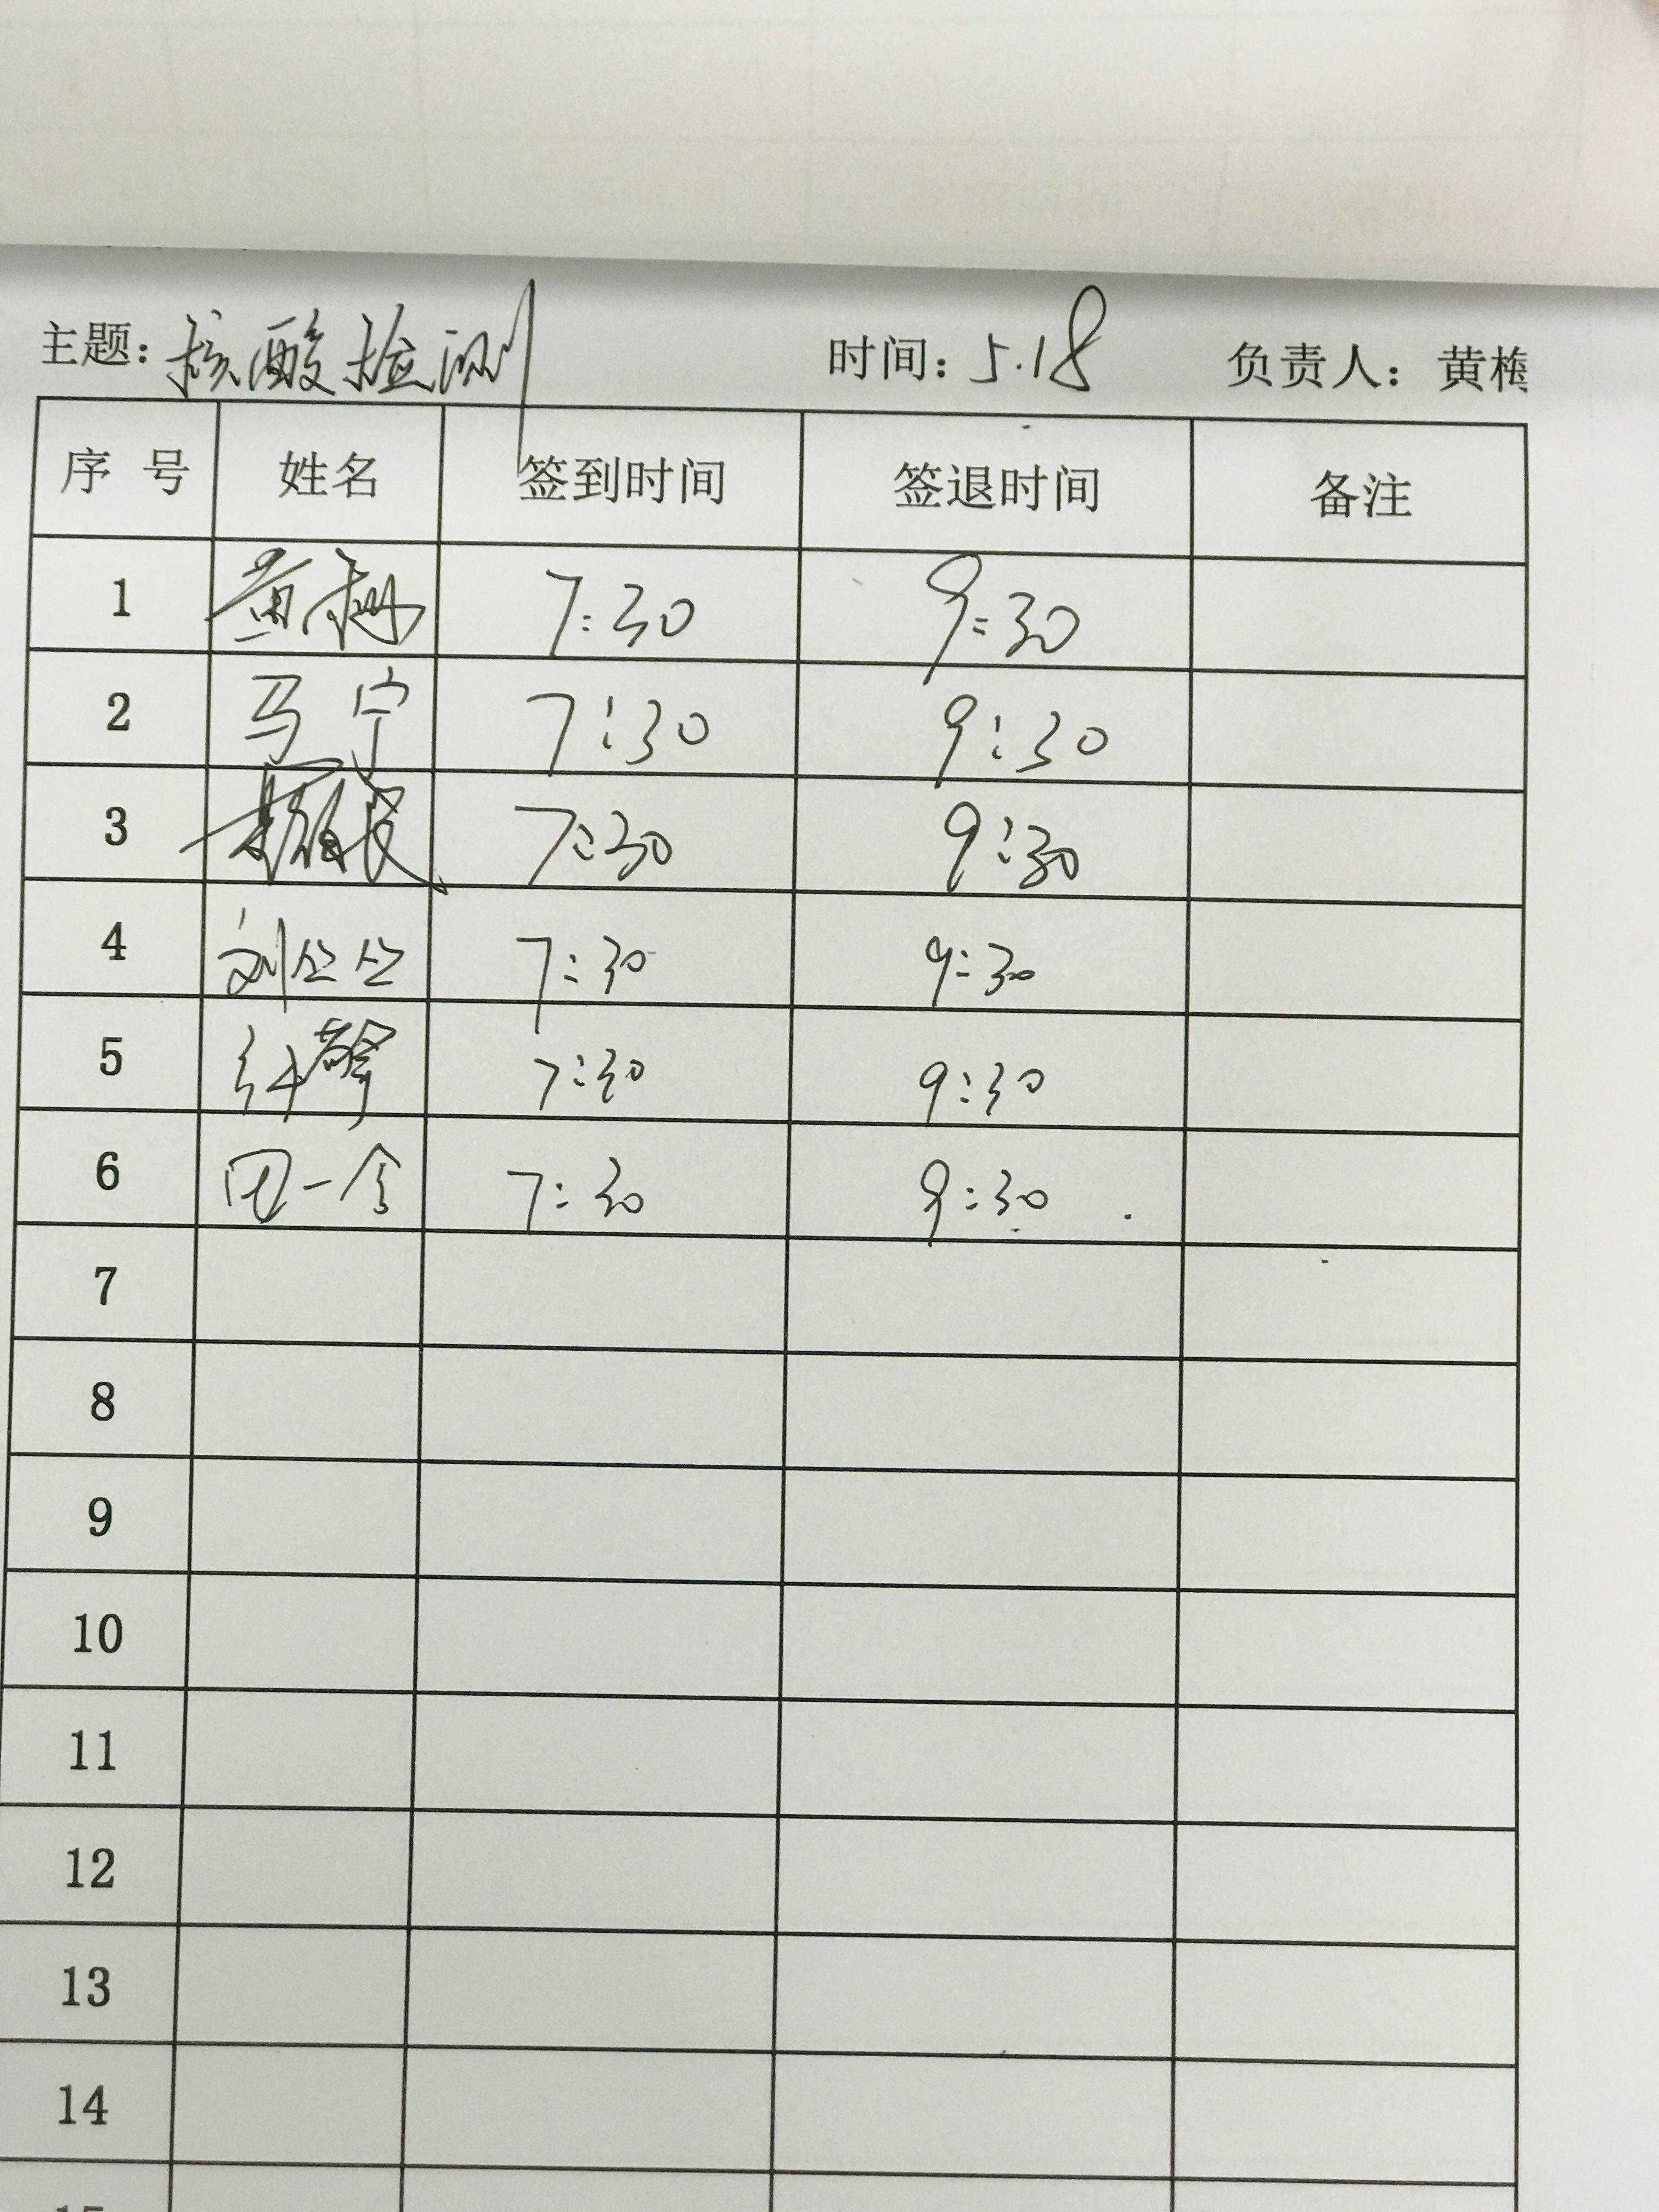 主题：核酸检测 时间：5.18 负责人：黄梅
序 号 姓名 签到时间 签退时间 备注
1 黄梅 7:30 9:30
2 马宁 7:30 9:30
3 7:30 9:30
4 刘公公 7:30 9:30
5 7:30 9:30
6 田一今 7:30 9:30
7
8
9
10
11
12
13
14
15